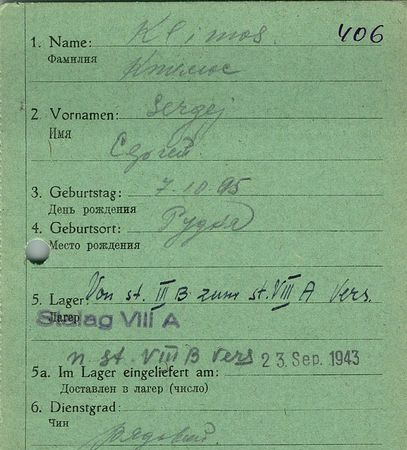 406
1. Name: Klimos.
Фамилия
2. Vornamen: Sergej
Имя
Сергей.
3. Geburtstag: 7.10.95
День рождения
4. Geburtsort: Рудня
Место рождения
5. Lager: Von St. III B zum St. VIII A vers.
Лагер
Stalag VIII A
n St. VIII B vers 23. Sep. 1943
5a. Im Lager eingeliefert am:
Доставлен в лагер (число)
6. Dienstgrad:
Чин
рядовой.